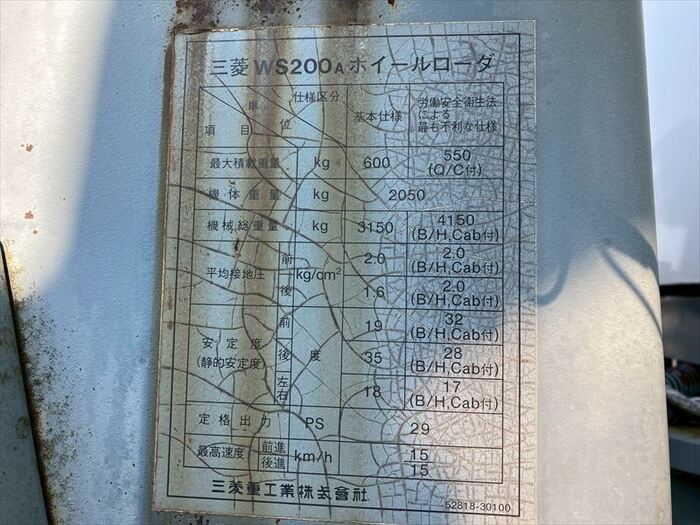 三菱 WS200A ホイールローダ
仕様区分 単位 項目 基本仕様 労働安全衛生法による最も不利な仕様
最大積載重量 kg 600 550 (Q/C付)
機体重量 kg 2050
機械総重量 kg 3150 4150 (B/H,Cab付)
平均接地圧 前 kg/cm² 2.0 2.0 (B/H,Cab付)
後 1.6 2.0 (B/H,Cab付)
安定度 (静的安定度) 前 度 19 32 (B/H,Cab付)
後 35 28 (B/H,Cab付)
左右 18 17 (B/H,Cab付)
定格出力 PS 29
最高速度 前進 km/h 15
後進 15
三菱重工業株式會社
52818-30100